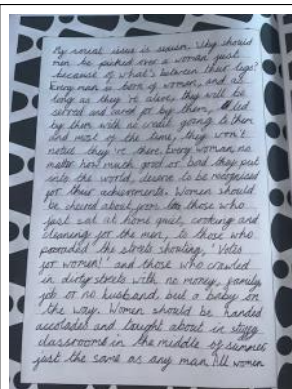 My social issue is sexism. Why should
men be picked over a woman just
because of what's between their legs?
Every man is born of women, and as
long as they're alive, they will be
served and cared for by them, led
by them with no credit going to them
and most of the time, they won't
notice they're there. Every woman, no
matter how much good or bad they put
into the world, deserve to be recognised
for their achievements. Women should
be cheered about from those who
just sat at home quiet, cooking and
cleaning for the men, to those who
paraded the streets shouting, 'Votes
for women!' and those who crawled
in dirty streets with no money, family,
job or no husband, but a baby on
the way. Women should be handed
accolades and taught about in stuffy
classrooms in the middle of summer
just the same as any man. All women